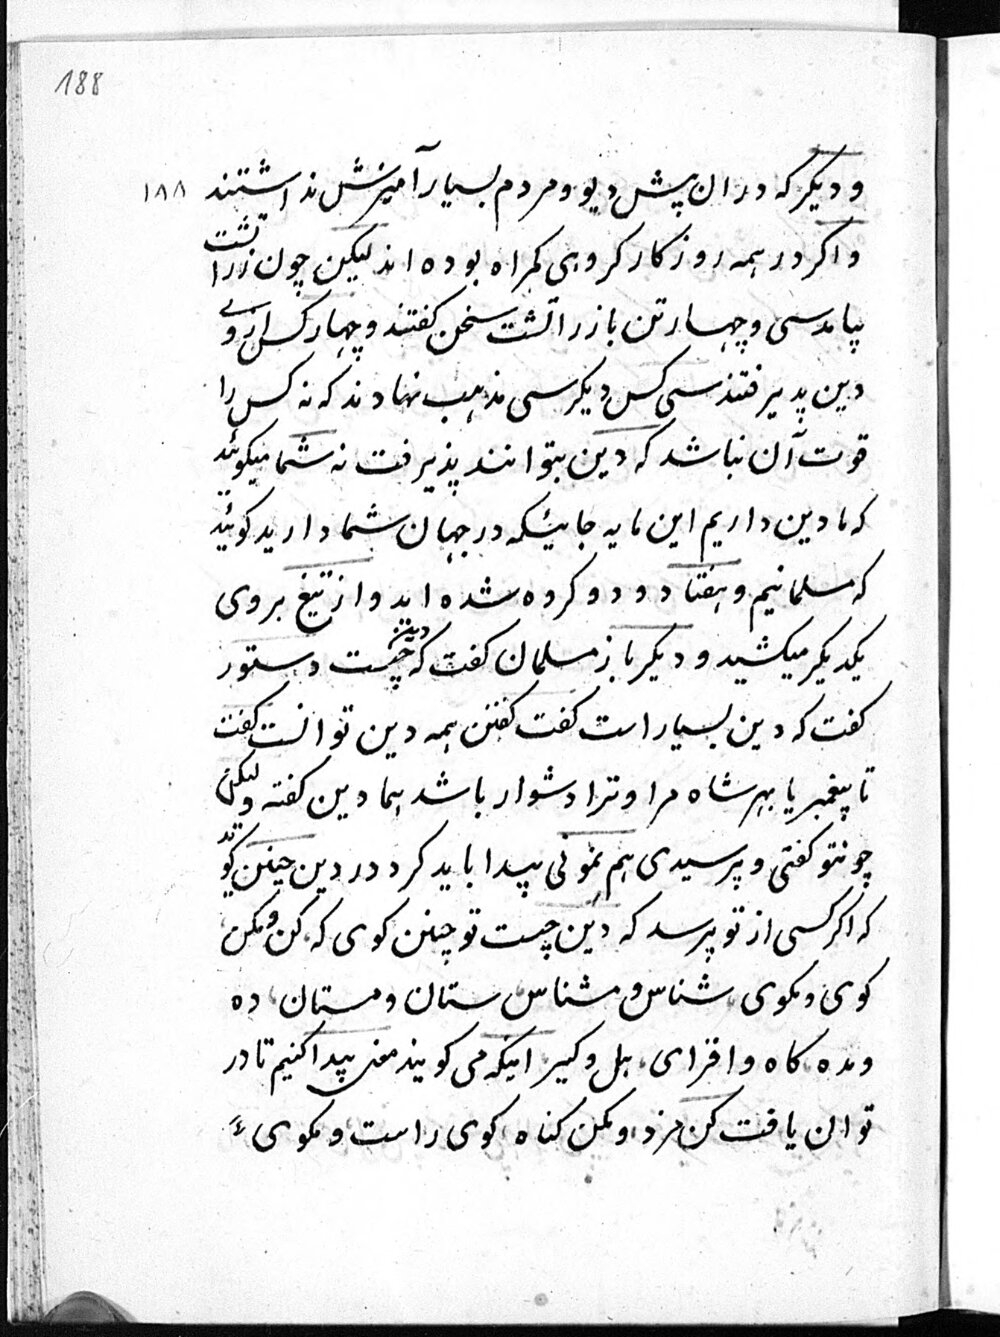 188
و دیکر که دران پیش دیو و مردم بسیار آمیزش نداشتند ۱۸۸
و اکر در همه روزکار کروهی کمراه بوده اند لیکن چون زراتشت
بیامد سی و چهار تن با زراتشت سخن کفتند و چهار کس از وی
دین پذیرفتند سی کس دیکر سی مذهب نهادند که نه کس را
قوت آن نباشد که دین بتوانند پذیرفت نه شما میکوئید
که ما دین داریم این مایه جائیکه در جهان شما دارید کوئید
که مسلمانیم و هفتاد و دو کروه شده اید و از تیغ بروی
یکدیکر میکشید و دیکر باز مسلمان کفت که دین چیست دستور
کفت که دین بسیار است کفت کفتن همه دین توانست کفت
تا پیغمبر یا بهر شاه مرا و ترا دشوار باشد هما دین کفته ولیکن
چونتو کفتی و پرسیدی هم نمونی پیدا باید کرد در دین چنین کوید
که اکر کسی از تو پرسد که دین چیست تو چنین کوی که کن و مکن
کوی و مکوی شناس و مشناس ستان و مستان ده
و مده کاه و افزای هل و کیر اینکه می کویند معنی پیدا کنیم تا در
توان یافت کن مزد و مکن کناه کوی راست و مکوی